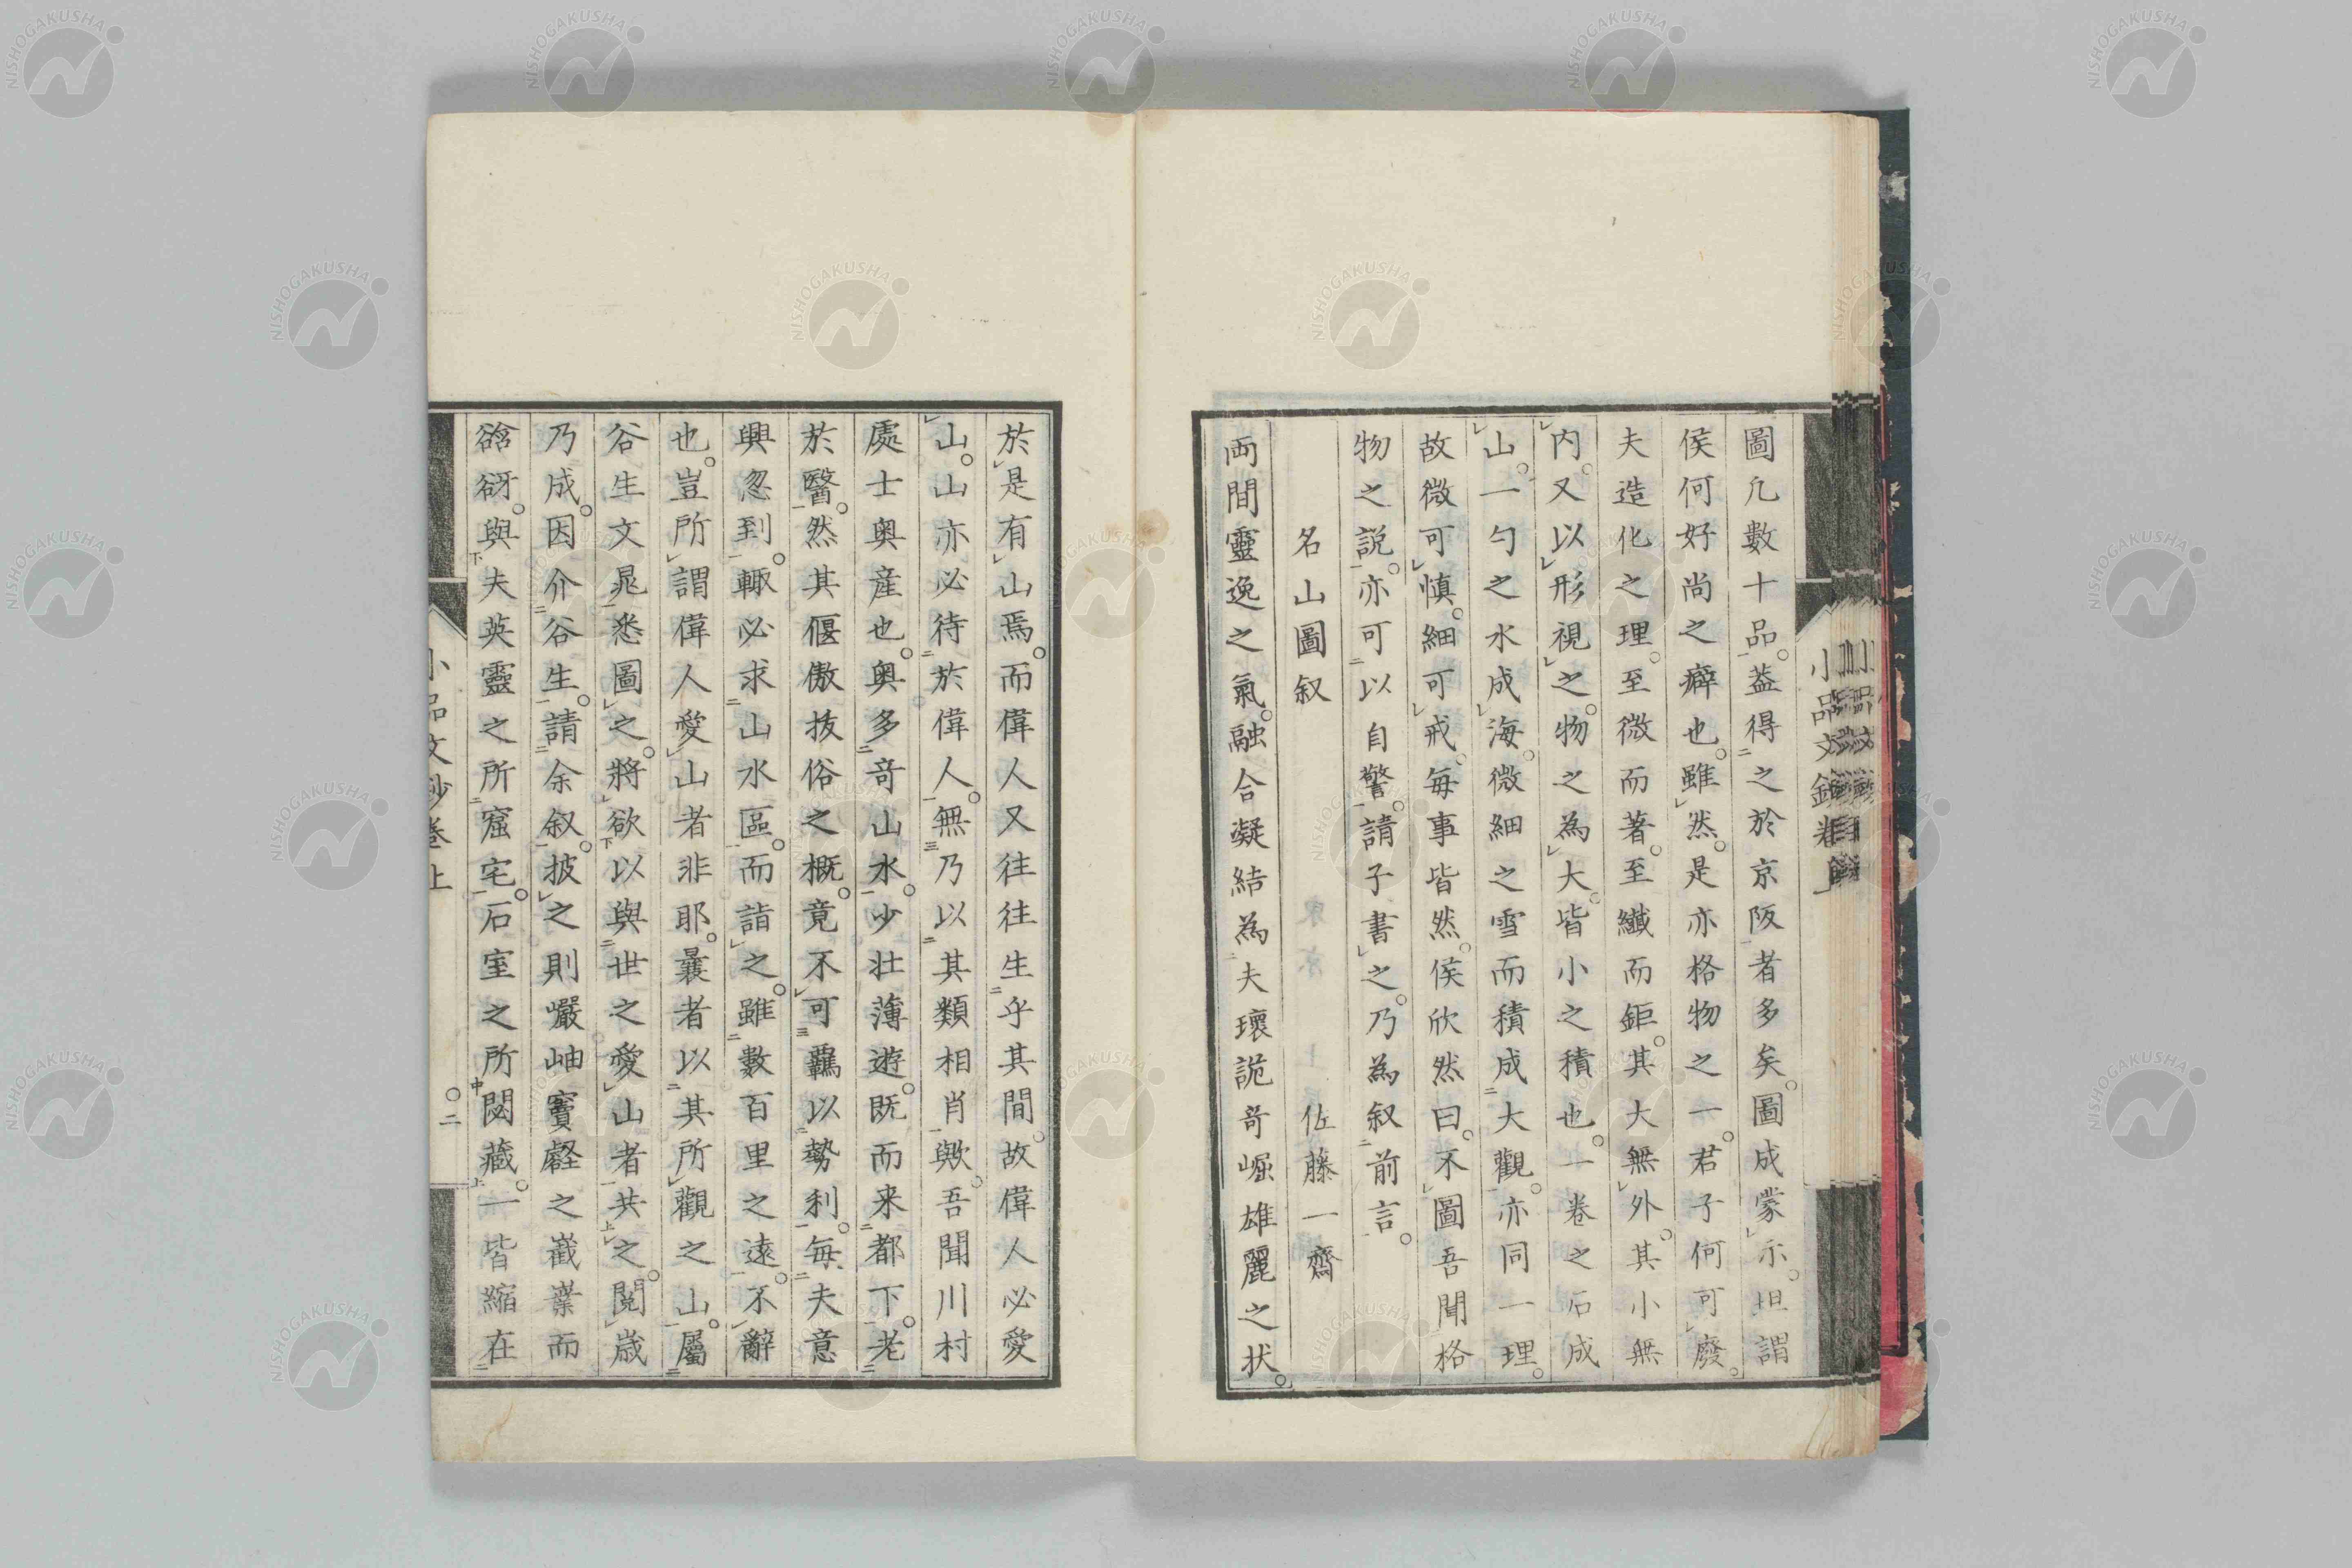 圖凢數十品。蓋得之於京阪者多矣。圖成蒙示。坦謂
侯何好尚之癖也。雖然。是亦格物之一。君子何可廢。
夫造化之理。至微而著。至纎而鉅。其大無外。其小無
内。又以形視之。物之為大。皆小之積也。一卷之石成
山。一勺之水成海。微細之雪而積成大觀。亦同一理。
故微可慎。細可戒。毎事皆然。侯欣然曰。不圖吾聞格
物之説。亦可以自警。請子書之。乃為叙前言。
名山圖叙 佐藤一齋
両間靈逸之氣。融合凝結為夫瓌詭奇崛雄麗之状。
於是有山焉。而偉人又往往生乎其間。故偉人必愛
山。山亦必待於偉人。無乃以其類相肖歟。吾聞川村
處士奥産也。奥多奇山水。少壮薄遊。既而来都下。老
於醫。然其偃傲抜俗之概。竟不可羈以勢利。毎夫意
興忽到。輙必求山水區。而詣之。雖數百里之遠。不辭
也。豈所謂偉人愛山者非耶。曩者以其所觀之山。屬
谷生文晁悉圖之。將欲以與世之愛山者共之。閲歳
乃成。因介谷生。請余叙。披之則巖岫竇嵌之嶻嶪而
谽谺。與夫英靈之所窟宅。石室之所閟藏。一皆縮在
小品文鈔卷上 〇二
小品文鈔卷上
NISHOGAKUSHA